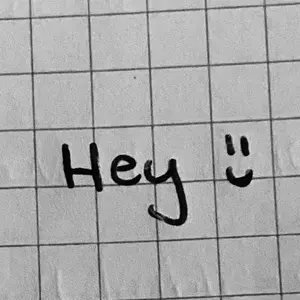 Hey :)